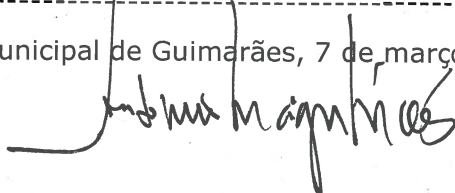 unicipal de Guimarães, 7 de març
António Magalhães